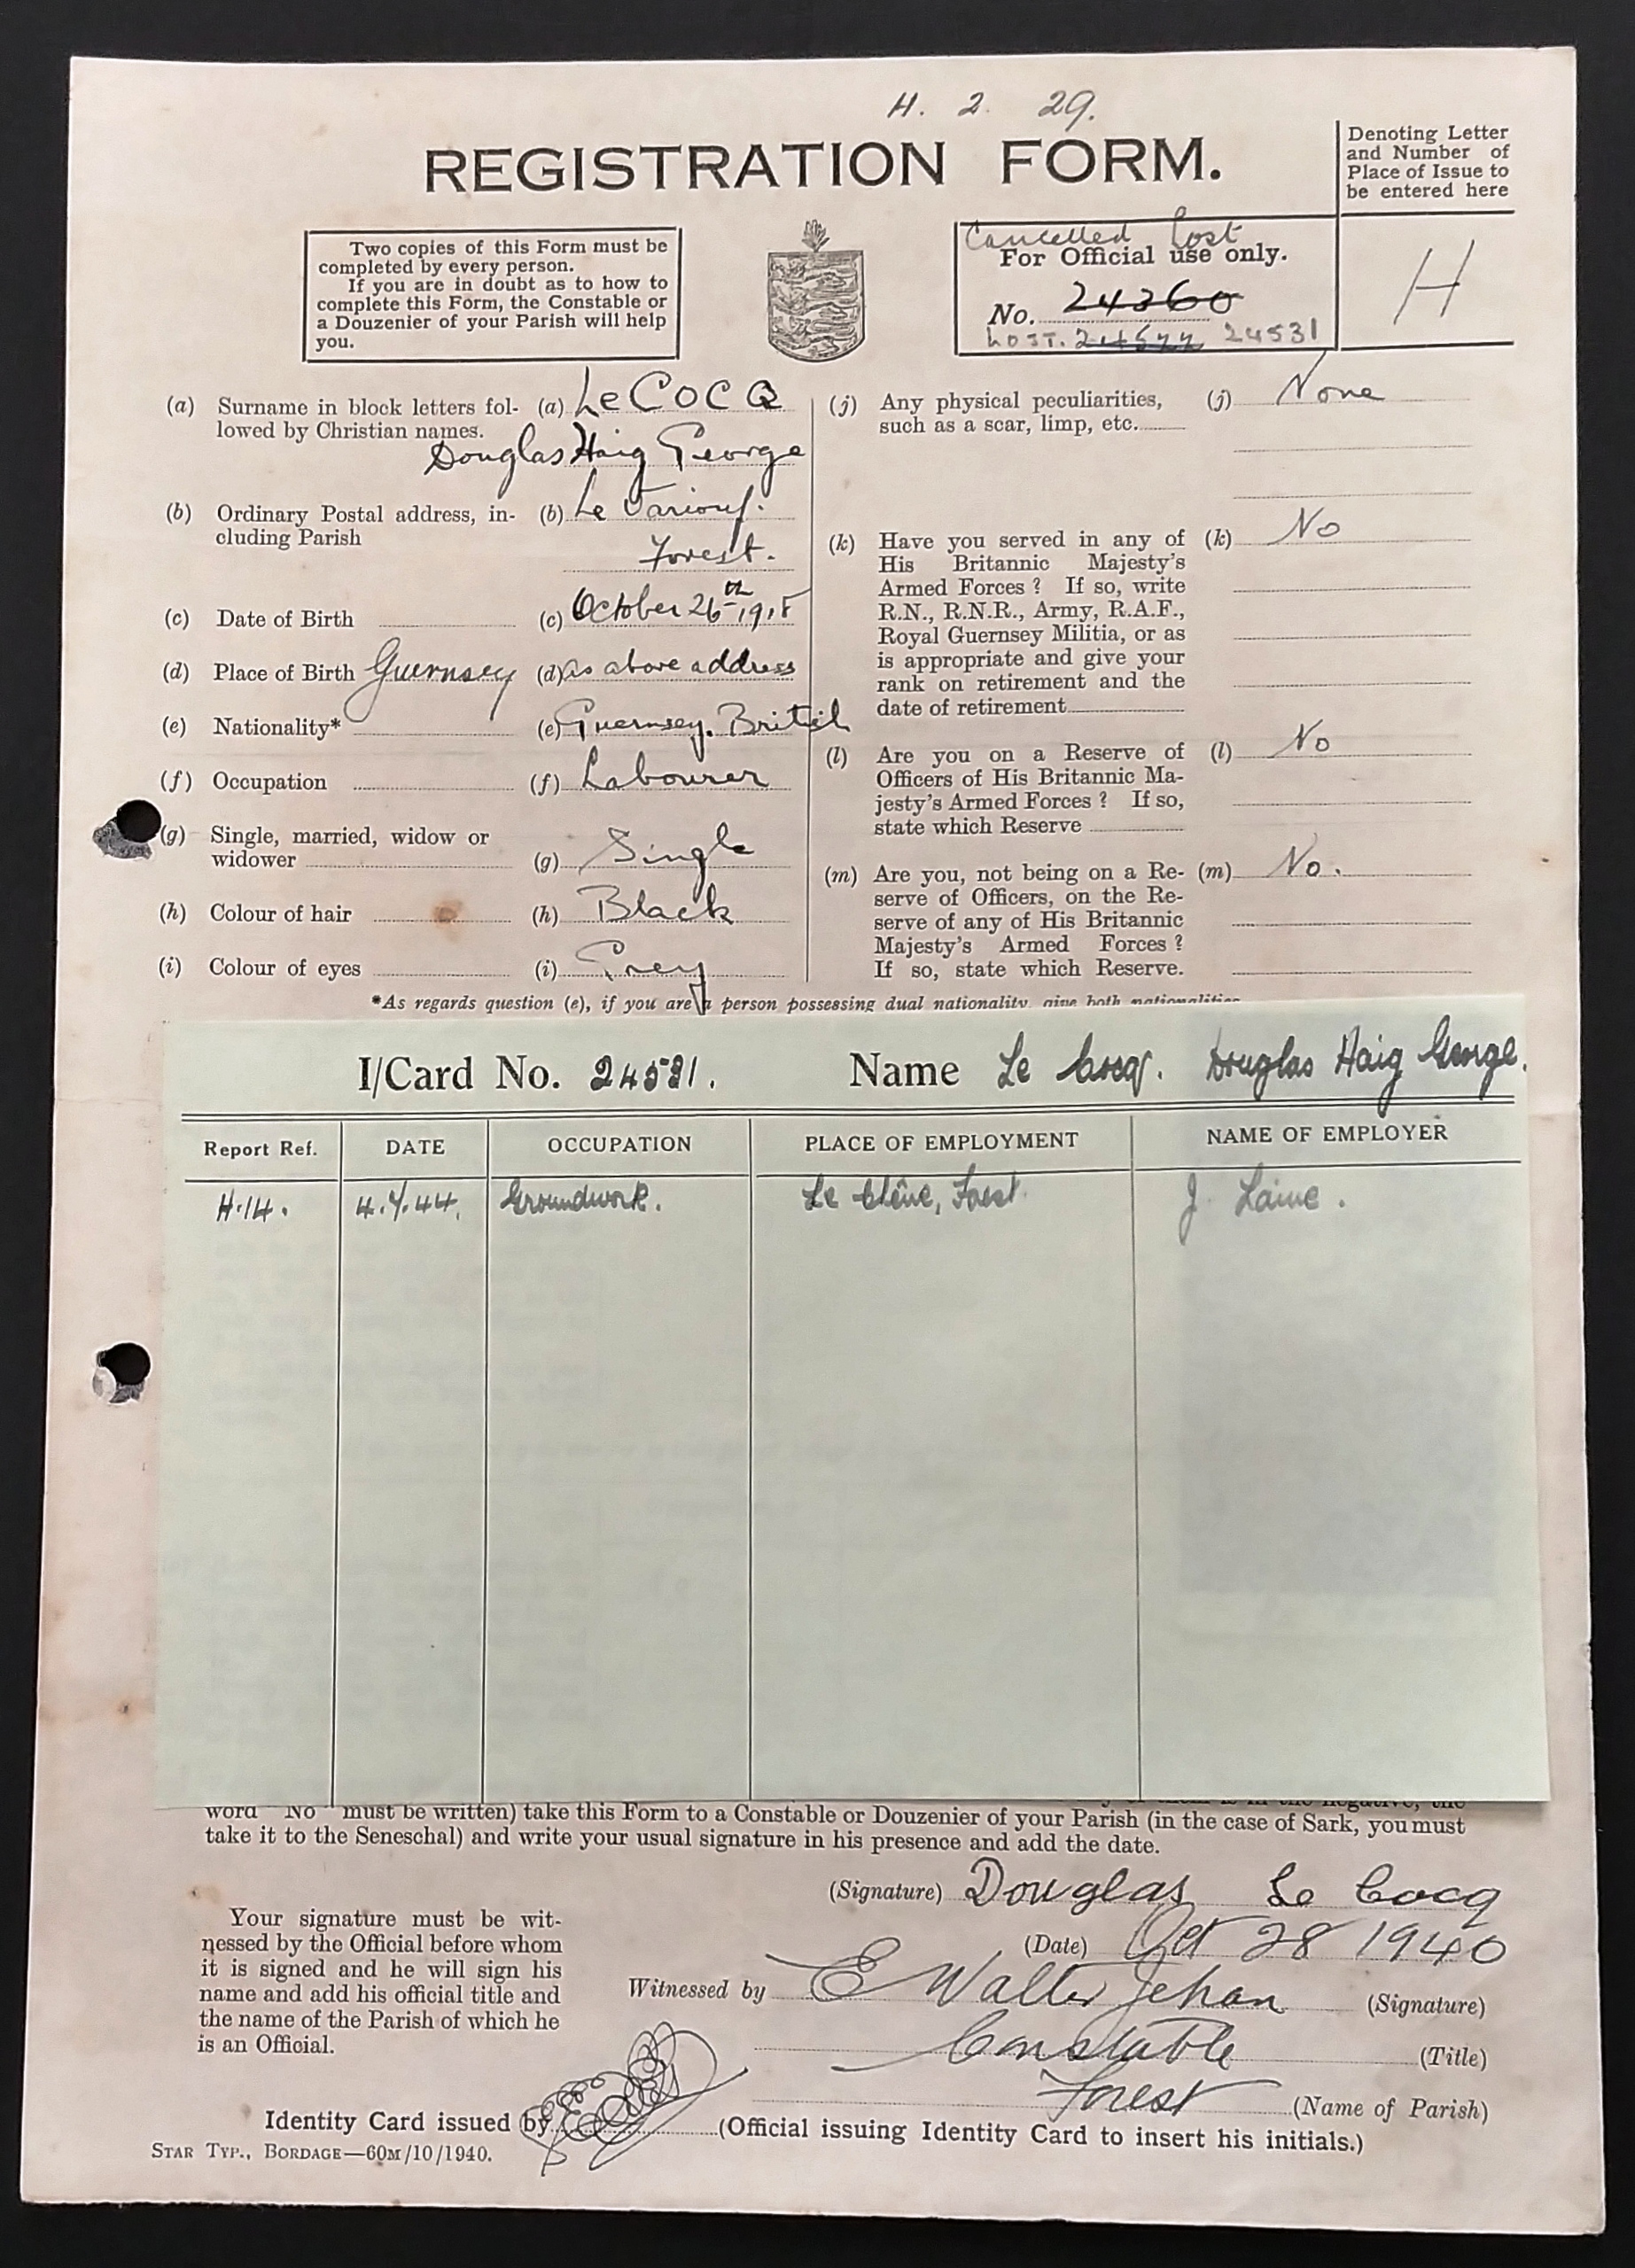 H. 2. 29.
REGISTRATION FORM.
Denoting Letter
and Number of
Place of Issue to
be entered here
H
Two copies of this Form must be
completed by every person.
If you are in doubt as to how to
complete this Form, the Constable or
a Douzenier of your Parish will help
you.
Cancelled Lost
For Official use only.
No. 24360
LOST. 24531
(a) Surname in block letters fol- (a) Le COCQ
lowed by Christian names.
Douglas Haig George
(b) Ordinary Postal address, in- (b) Le Variouf.
cluding Parish
Forest.
(c) Date of Birth (c) October 26th 1918
(d) Place of Birth Guernsey (d) as above address
(e) Nationality* (e) Guernsey. British
(f) Occupation (f) Labourer
(g) Single, married, widow or
widower (g) Single
(h) Colour of hair (h) Black
(i) Colour of eyes (i) Grey
(j) Any physical peculiarities, (j) None
such as a scar, limp, etc.
(k) Have you served in any of (k) No
His Britannic Majesty's
Armed Forces? If so, write
R.N., R.N.R., Army, R.A.F.,
Royal Guernsey Militia, or as
is appropriate and give your
rank on retirement and the
date of retirement
(l) Are you on a Reserve of (l) No
Officers of His Britannic Ma-
jesty's Armed Forces? If so,
state which Reserve
(m) Are you, not being on a Re- (m) No.
serve of Officers, on the Re-
serve of any of His Britannic
Majesty's Armed Forces?
If so, state which Reserve.
*As regards question (e), if you are a person possessing dual nationality, give both nationalities
I/Card No. 24531. Name Le Cocq. Douglas Haig George.
Report Ref. DATE OCCUPATION PLACE OF EMPLOYMENT NAME OF EMPLOYER
H.14. 4.7.44. Groundwork. Le Chêne, Forest. J. Laine.
word "No" must be written) take this Form to a Constable or Douzenier of your Parish (in the case of Sark, you must
take it to the Seneschal) and write your usual signature in his presence and add the date.
(Signature) Douglas Le Cocq
(Date) Oct 28 1940
Your signature must be wit-
nessed by the Official before whom
it is signed and he will sign his
name and add his official title and
the name of the Parish of which he
is an Official.
Witnessed by E Walter Jehan (Signature)
Constable (Title)
Forest (Name of Parish)
Identity Card issued by (Official issuing Identity Card to insert his initials.)
STAR TYP., BORDAGE—60M/10/1940.